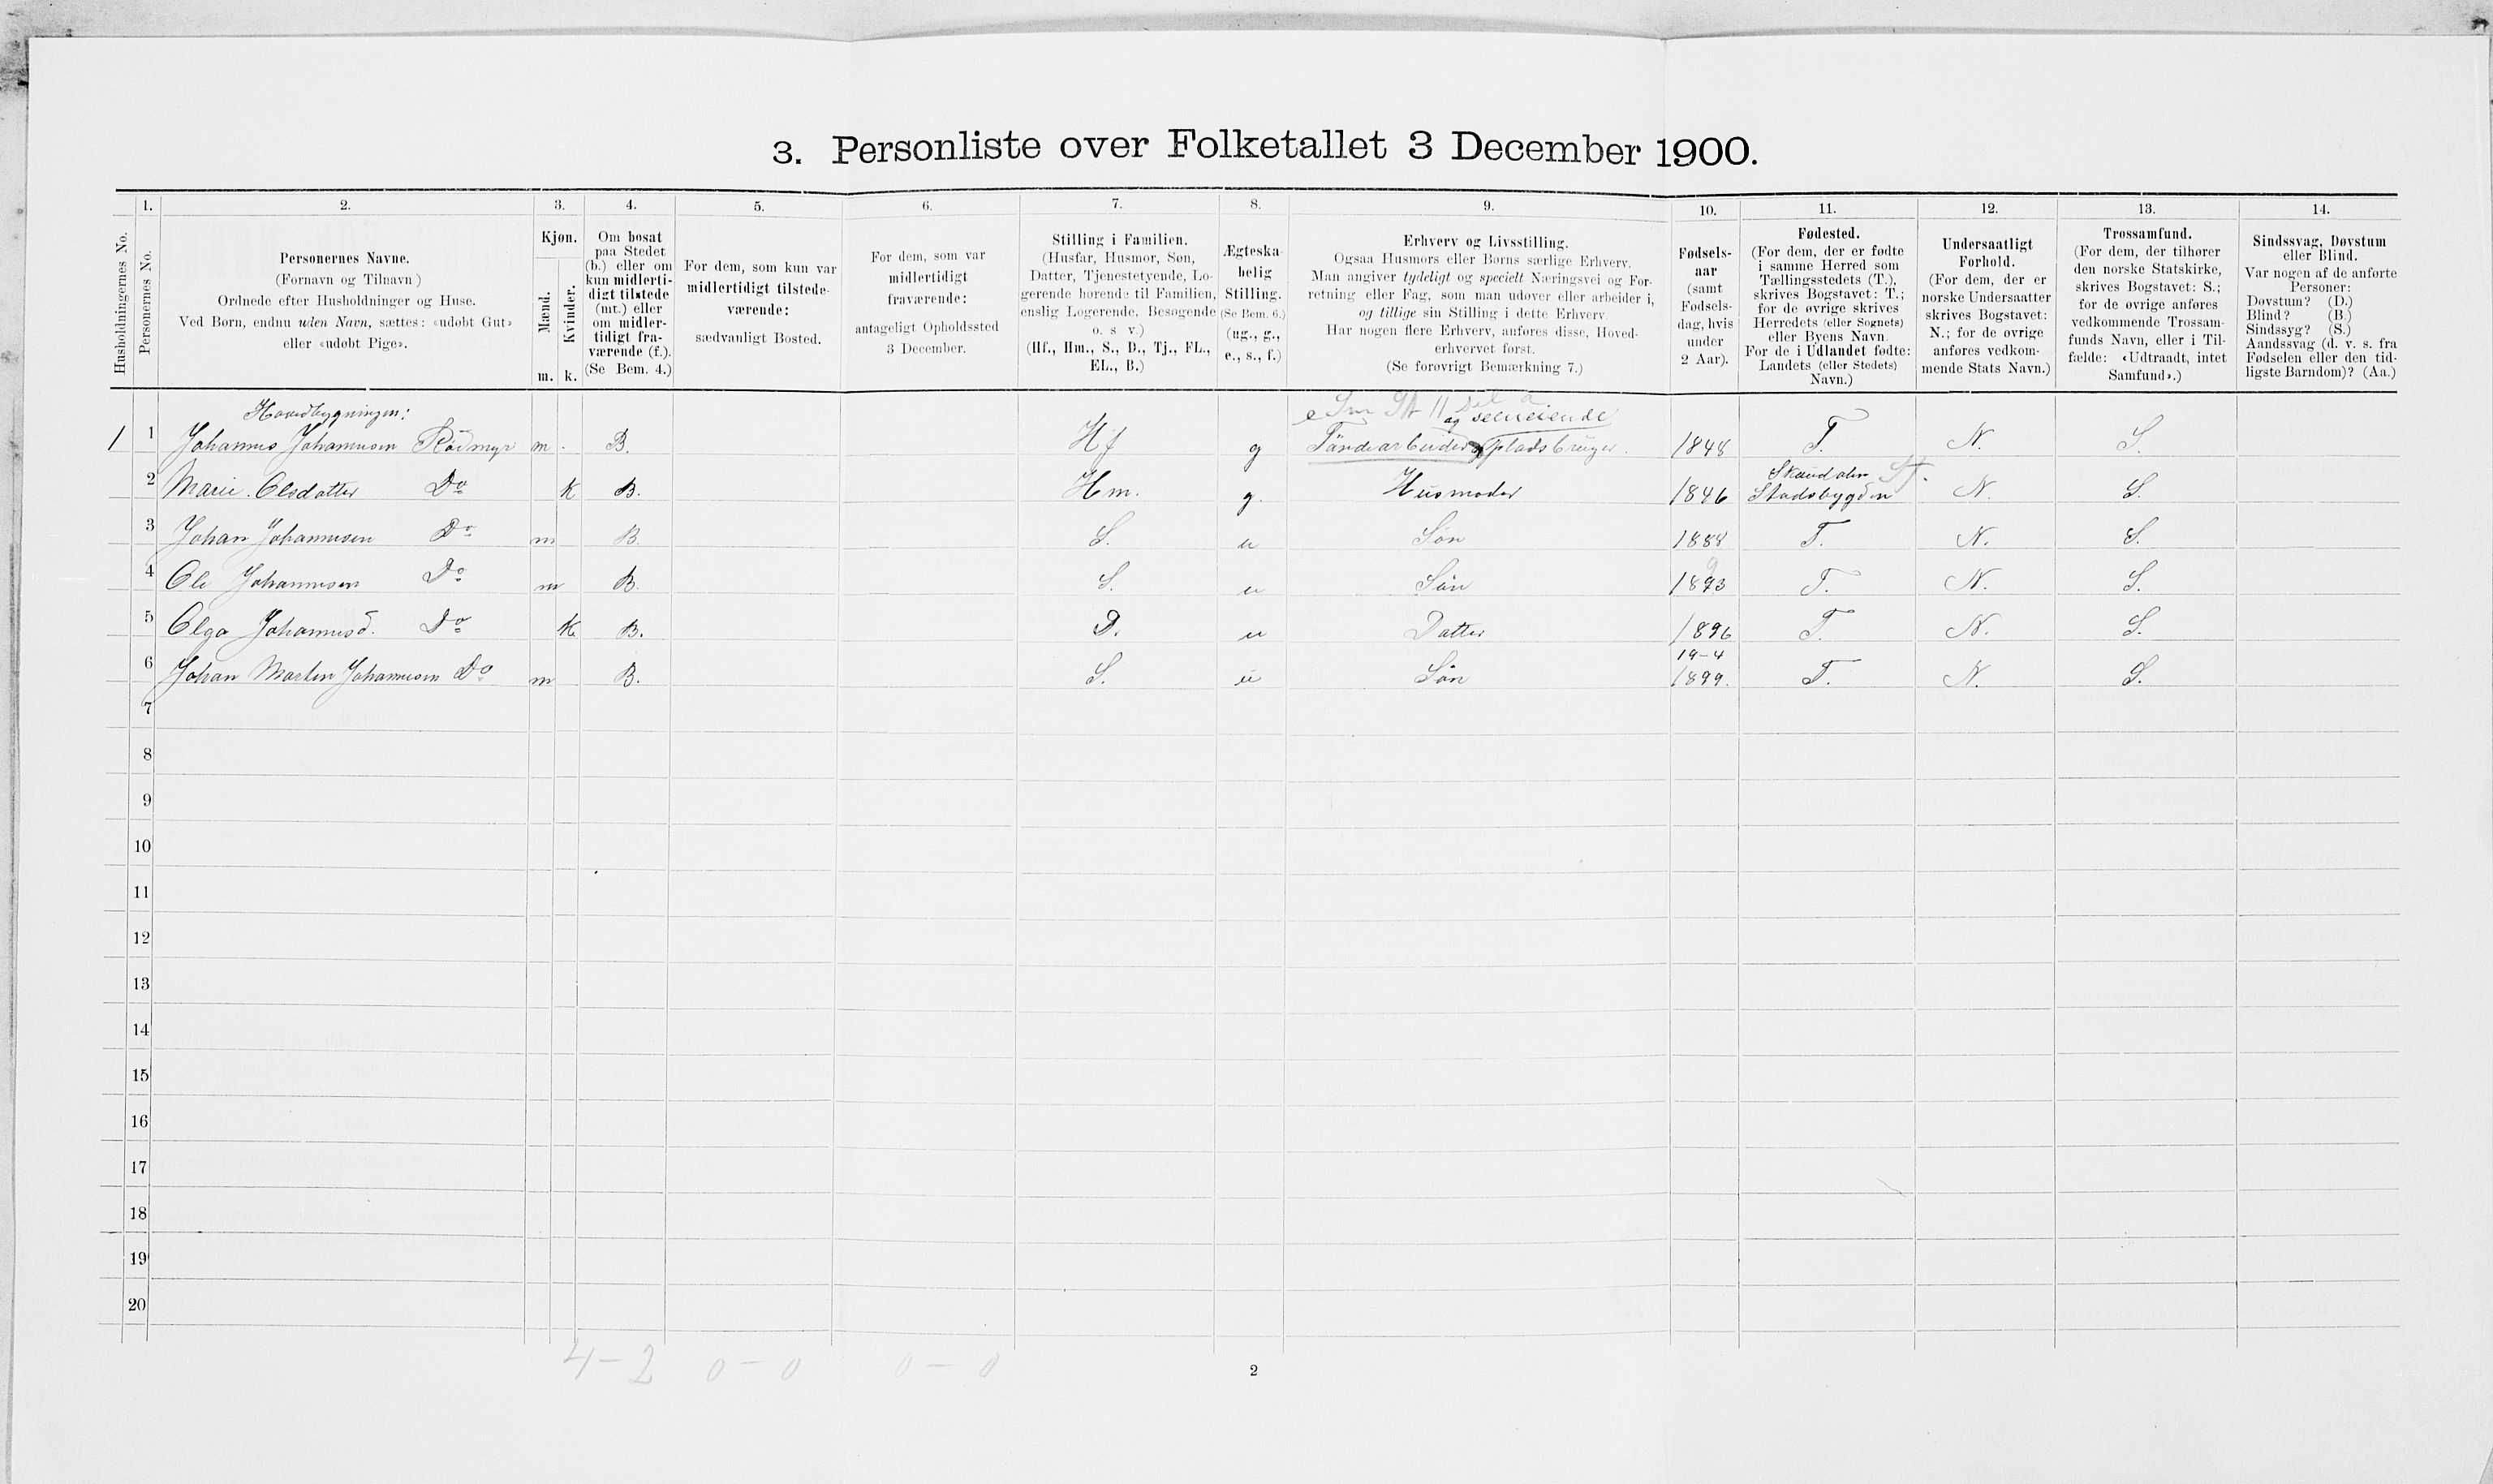 3. Personliste over Folketallet 3 December 1900.
Husholdningernes No.
1.
Personernes No.
2.
Personernes Navne.
(Fornavn og Tilnavn)
Ordnede efter Husholdninger og Huse.
Ved Børn, endnu uden Navn, sættes: «udøbt Gut»
eller «udøbt Pige».
3.
Kjøn.
Mænd.
m.
Kvinder.
k.
4.
Om bosat
paa Stedet
(b.) eller om
kun midlerti-
digt tilstede
(mt.) eller
om midler-
tidigt fra-
værende (f.).
(Se Bem. 4.)
5.
For dem, som kun var
midlertidigt tilstede-
værende:
sædvanligt Bosted.
6.
For dem, som var
midlertidigt
fraværende:
antageligt Opholdssted
3 December.
7.
Stilling i Familien.
(Husfar, Husmor, Søn,
Datter, Tjenestetyende, Lo-
gerende hørende til Familien,
enslig Logerende, Besøgende
o. s v.)
(Hf., Hm., S., D., Tj., FL.,
EL., B.)
8.
Ægteska-
belig
Stilling.
(Se Bem. 6.)
(ug., g.,
e., s., f.)
9.
Erhverv og Livsstilling.
Ogsaa Husmors eller Børns særlige Erhverv.
Man angiver tydeligt og specielt Næringsvei og For-
retning eller Fag, som man udøver eller arbeider i,
og tillige sin Stilling i dette Erhverv.
Har nogen flere Erhverv, anføres disse, Hoved-
erhvervet først.
(Se forøvrigt Bemærkning 7.)
10.
Fødsels-
aar
(samt
Fødsels-
dag, hvis
under
2 Aar).
11.
Fødested.
(For dem, der er fødte
i samme Herred som
Tællingsstedets (T.),
skrives Bogstavet: T.;
for de øvrige skrives
Herredets (eller Sognets)
eller Byens Navn.
For de i Udlandet fødte:
Landets (eller Stedets)
Navn.)
12.
Undersaatligt
Forhold.
(For dem, der er
norske Undersaatter
skrives Bogstavet:
N.; for de øvrige
anføres vedkom-
mende Stats Navn.)
13.
Trossamfund.
(For dem, der tilhører
den norske Statskirke,
skrives Bogstavet: S.;
for de øvrige anføres
vedkommende Trossam-
funds Navn, eller i Til-
fælde: «Udtraadt, intet
Samfund».)
14.
Sindssvag, Døvstum
eller Blind.
Var nogen af de anførte
Personer:
Døvstum? (D.)
Blind? (B.)
Sindssyg? (S.)
Aandssvag (d. v. s. fra
Fødselen eller den tid-
ligste Barndom)? (Aa.)
Hovedbygningen:
og selveiende
1 1 Johannes Johannesen Rødmyr m. B. Hf g pladsbruger. 1848 T. N. S.
Skaudalen
2 Marie Olsdatter Do K B. Hm. g. Husmoder 1846 Stadsbygden N. S.
3 Johan Johannesen Do m B. S. u Søn 1888 T. N. S.
4 Ole Johannesen Do m B. S. u Søn 1893 T. N. S.
5 Olga Johannesd. Do K B. D. u Datter 1896 T. N. S.
19-4
6 Johan Martin Johannesen Do m B. S. u Søn 1899. T. N. S.
7
8
9
10
11
12
13
14
15
16
17
18
19
20
4 - 2 0 - 0 0 - 0
2